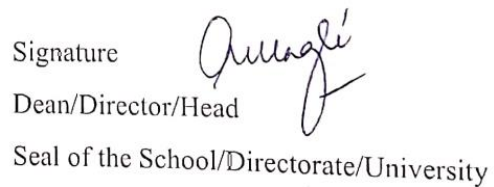 Signature
Dean/Director/Head
Seal of the School/Directorate/University